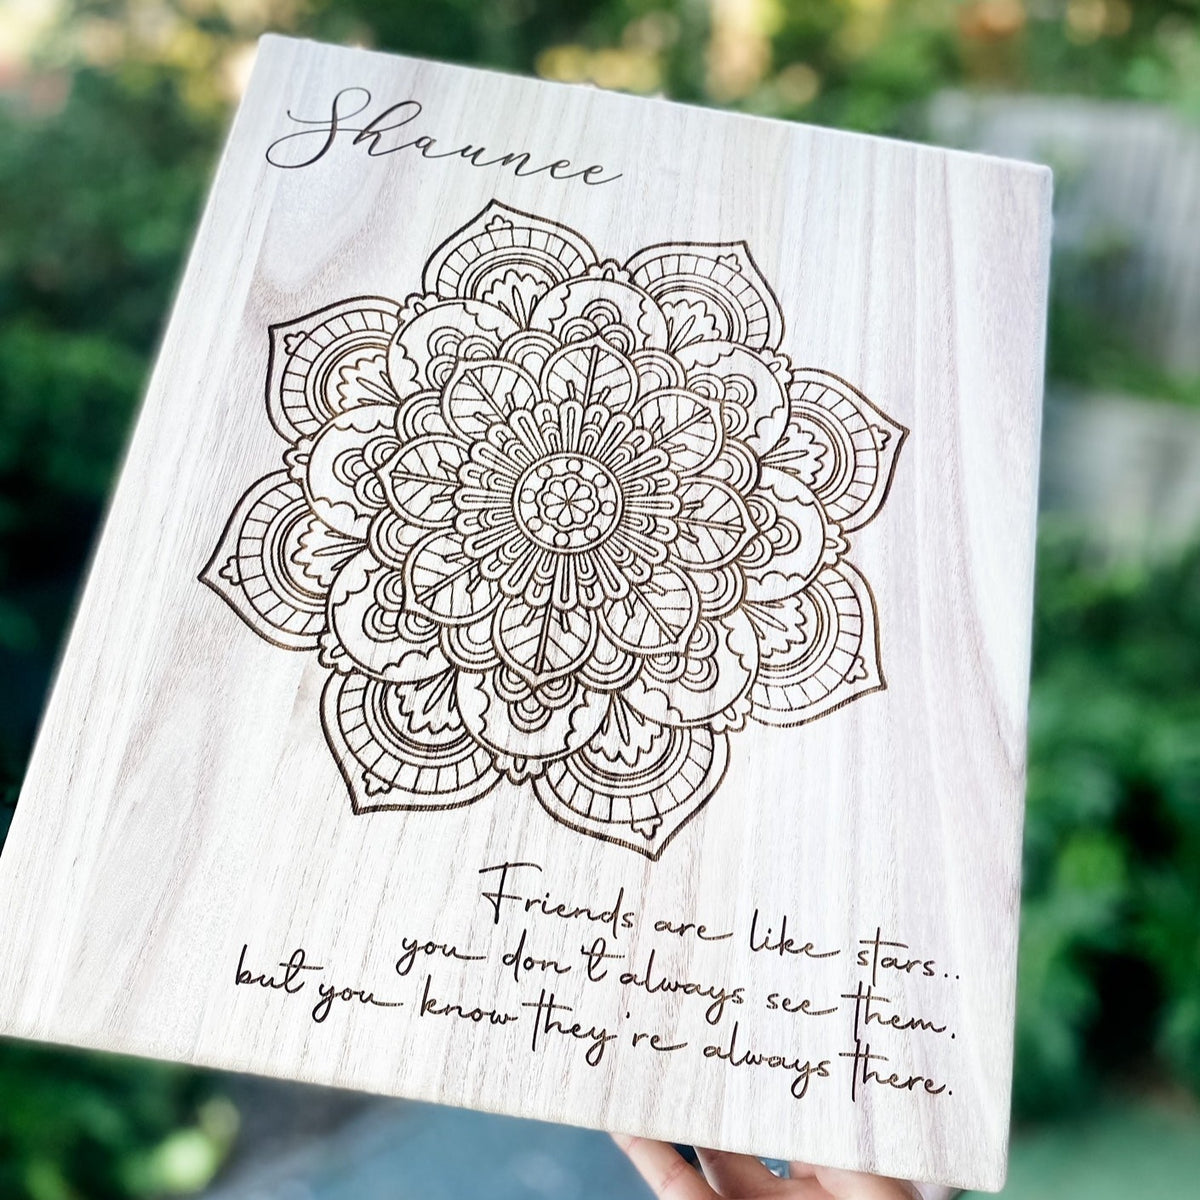 Shaunee
Friends are like stars..
you don't always see them.
but you know they're always there.